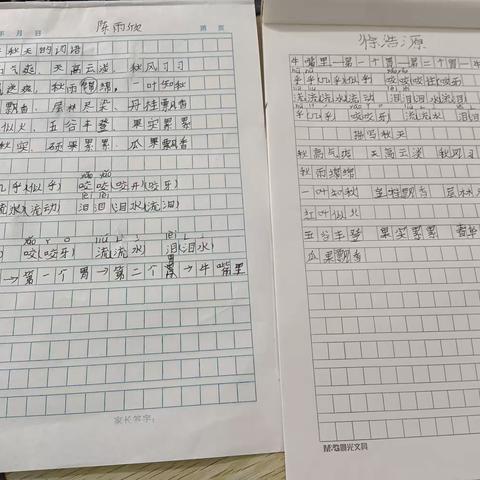 陈雨欣
年 月 日 第 页
秋天的词语
气爽、天高云淡、秋风习习
秋雨绵绵、一叶知秋
飘香、层林尽染、丹桂飘香
似火、五谷丰登、果实累累
秋实、硕果累累、瓜果飘香
几乎(似乎) 咬咬(咬牙)(咬牙)
流水(流动) 泪泪(泪水)(流泪)
咬(咬牙) 流流(流水) 泪泪(泪水)
→第一个胃→第二个胃→牛嘴里
家长签字:
徐浩源
牛嘴里—第一个胃—第二个胃—牛
流流(流水)流动 泪泪(泪水)流泪
描写秋天
秋高气爽 天高云淡 秋风习
秋雨绵绵
一叶知秋 丹桂飘香 层林
红叶似火
五谷丰登 果实累累 春华
瓜果飘香
M&G晨光文具